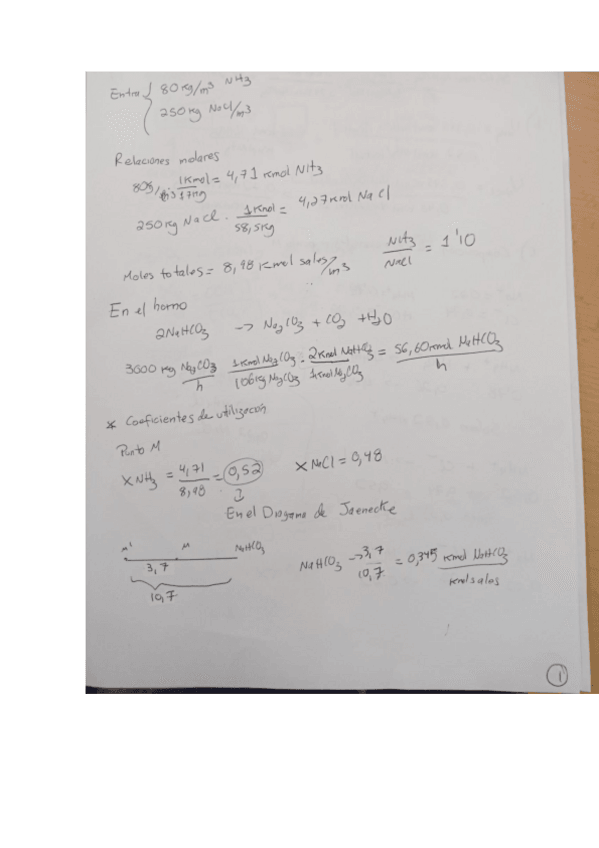 Entra { 80 kg/m³ NH3
250 kg NaCl/m³
Relaciones molares
80 · 1 Kmol / 17 kg = 4,71 kmol NH3
250 kg NaCl · 1 Kmol / 58,5 kg = 4,27 kmol NaCl
Moles totales = 8,98 Kmol sales/m³ NH3/NaCl = 1'10
En el horno
2NaHCO3 -> Na2CO3 + CO2 + H2O
3000 kg Na2CO3/h · 1 Kmol Na2CO3/106 kg Na2CO3 · 2 Kmol NaHCO3/1 Kmol Na2CO3 = 56,60 kmol NaHCO3/h
* Coeficientes de utilización
Punto M
X NH3 = 4,71/8,98 = 0,52 X NaCl = 0,48
En el Diagrama de Jaenecke
M' M NaHCO3
3,7
10,7
NaHCO3 -> 3,7/10,7 = 0,345 Kmol NaHCO3/Kmol sales
1